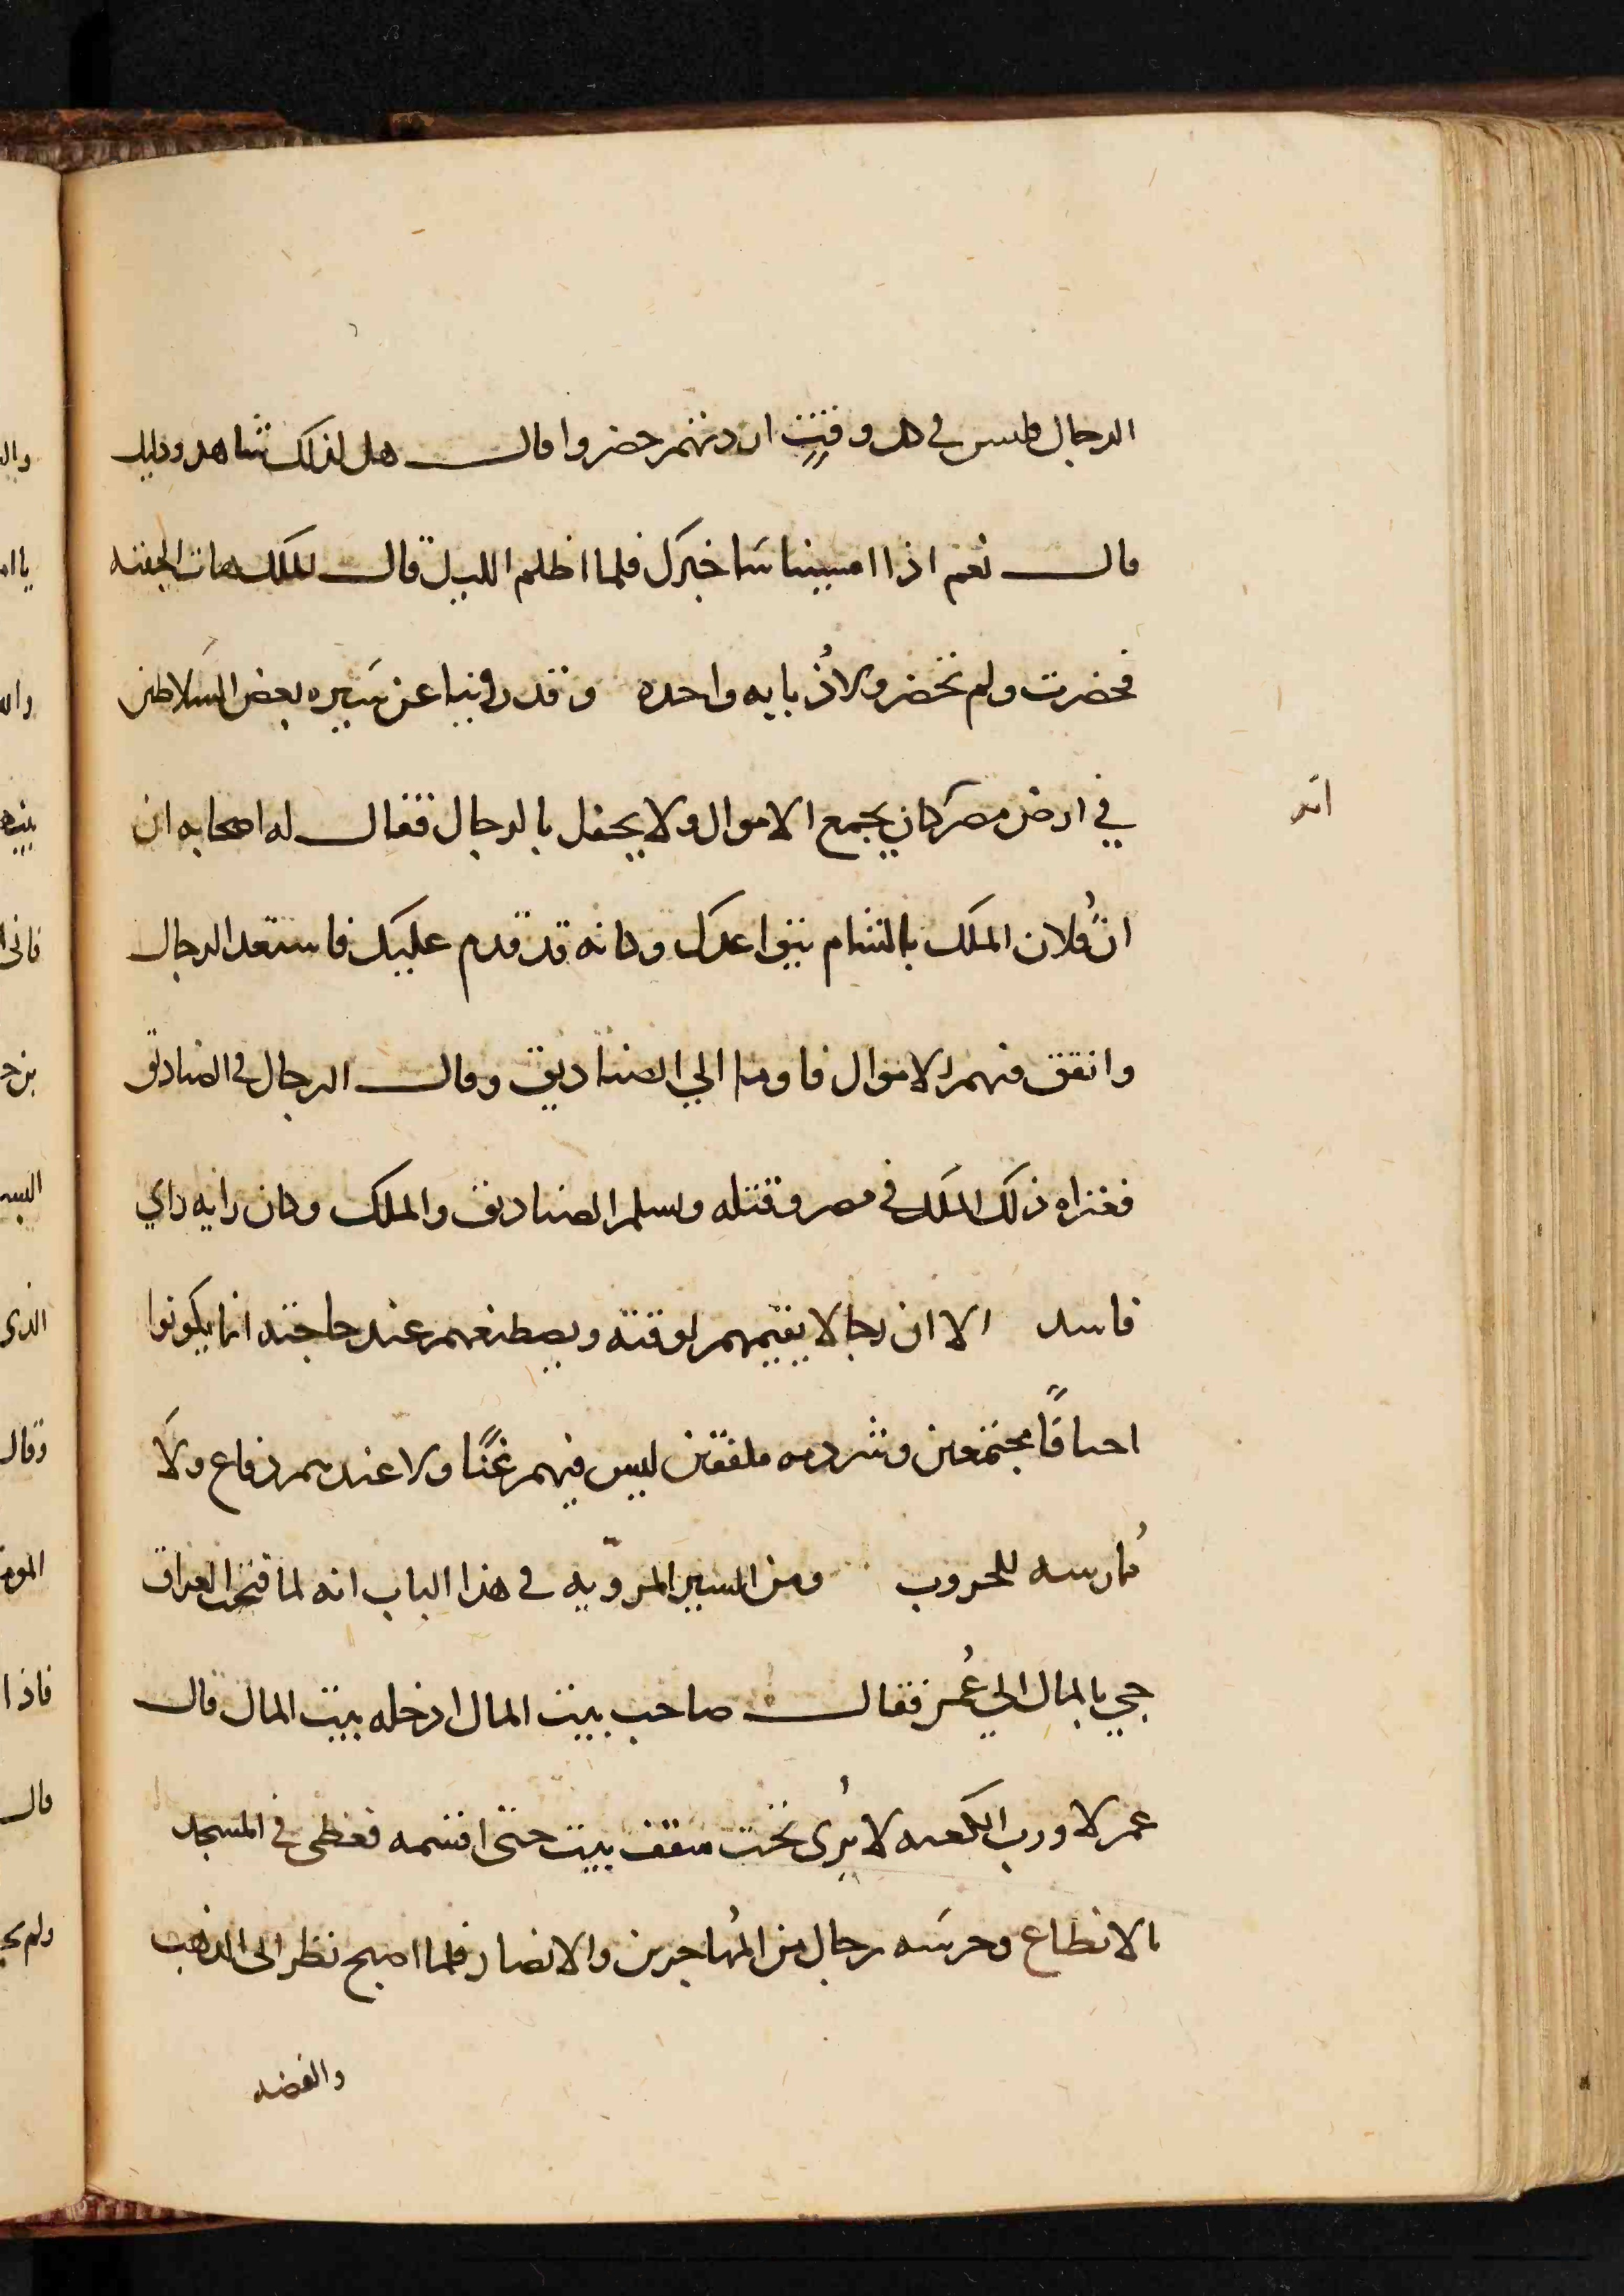 الرجال فليس في كل وقتٍ اردتهم حضروا قال هل لذلك شاهد ودليل
قال نعم اذا امسينا ساخبرك فلما اظلم الليل قال للملك هات الجفنه
فحضرت ولم تحضر ولا ذبابه واحده وقد روينا عن سيره بعض السلاطين
انه
في ارض مصر كان يجمع الاموال ولا يحفل بالرجال فقال له اصحابه ان
انّ فلان الملك بالشام يتواعدك وكانه قد قدم عليك فاستعد الرجال
وانفق فيهم الاموال فاوما الي الصناديق وقال الرجال في الصنادق
فغزاه ذلك الملك في مصر وقتله وتسلم الصناديق والملك وكان رايه راي
فاسد الا ان رجالا يقيمهم لوقته ويصطنعهم عند حاجته انما يكونوا
مجتمعين وشردمه ملفقين ليس فيهم غنًا ولا عندهم دفاع ولا
مُمارسه للحروب ومن السير المرويّه في هذا الباب انه لما فتحت العراق
جي بالمال الي عُمر فقال صاحب بيت المال ادخله بيت المال قال
عمر لا ورب الكعبه لا يُرى تحت سقف بيت حتى اقسمه فغطى في المسجد
بالانطاع وحرسه رجال من المُهاجرين والانصار فلما اصبح نظر الى الذهب
والفضه